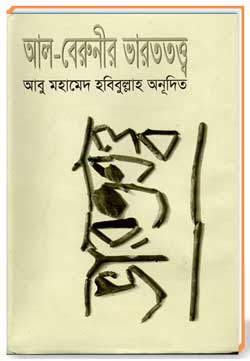 আল-বেরুনীর ভারততত্ত্ব
আবু মহামেদ হবিবুল্লাহ অনূদিত